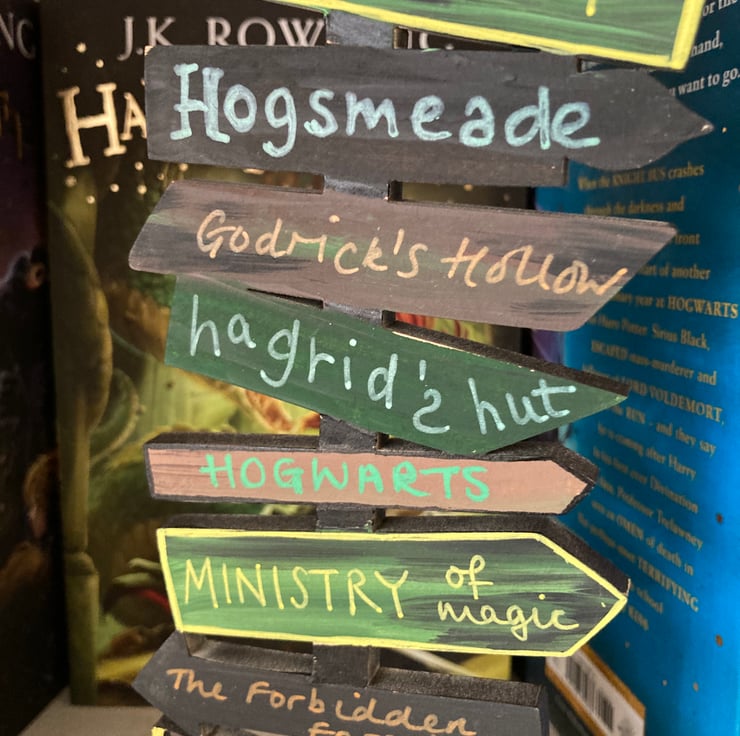 J.K. ROW
HA
Hogsmeade
Godrick's Hollow
hagrid's hut
HOGWARTS
MINISTRY of
magic
The Forbidden
want to go.
When the KNIGHT BUS crashes
through the darkness and
front
of another
year at HOGWARTS
Harry Potter Sirius Black,
ESCAPED mass-murderer and
LORD VOLDEMORT,
RUN - and they say
is coming after Harry
Professor Trelawney
an OMEN of death in
TERRIFYING
school